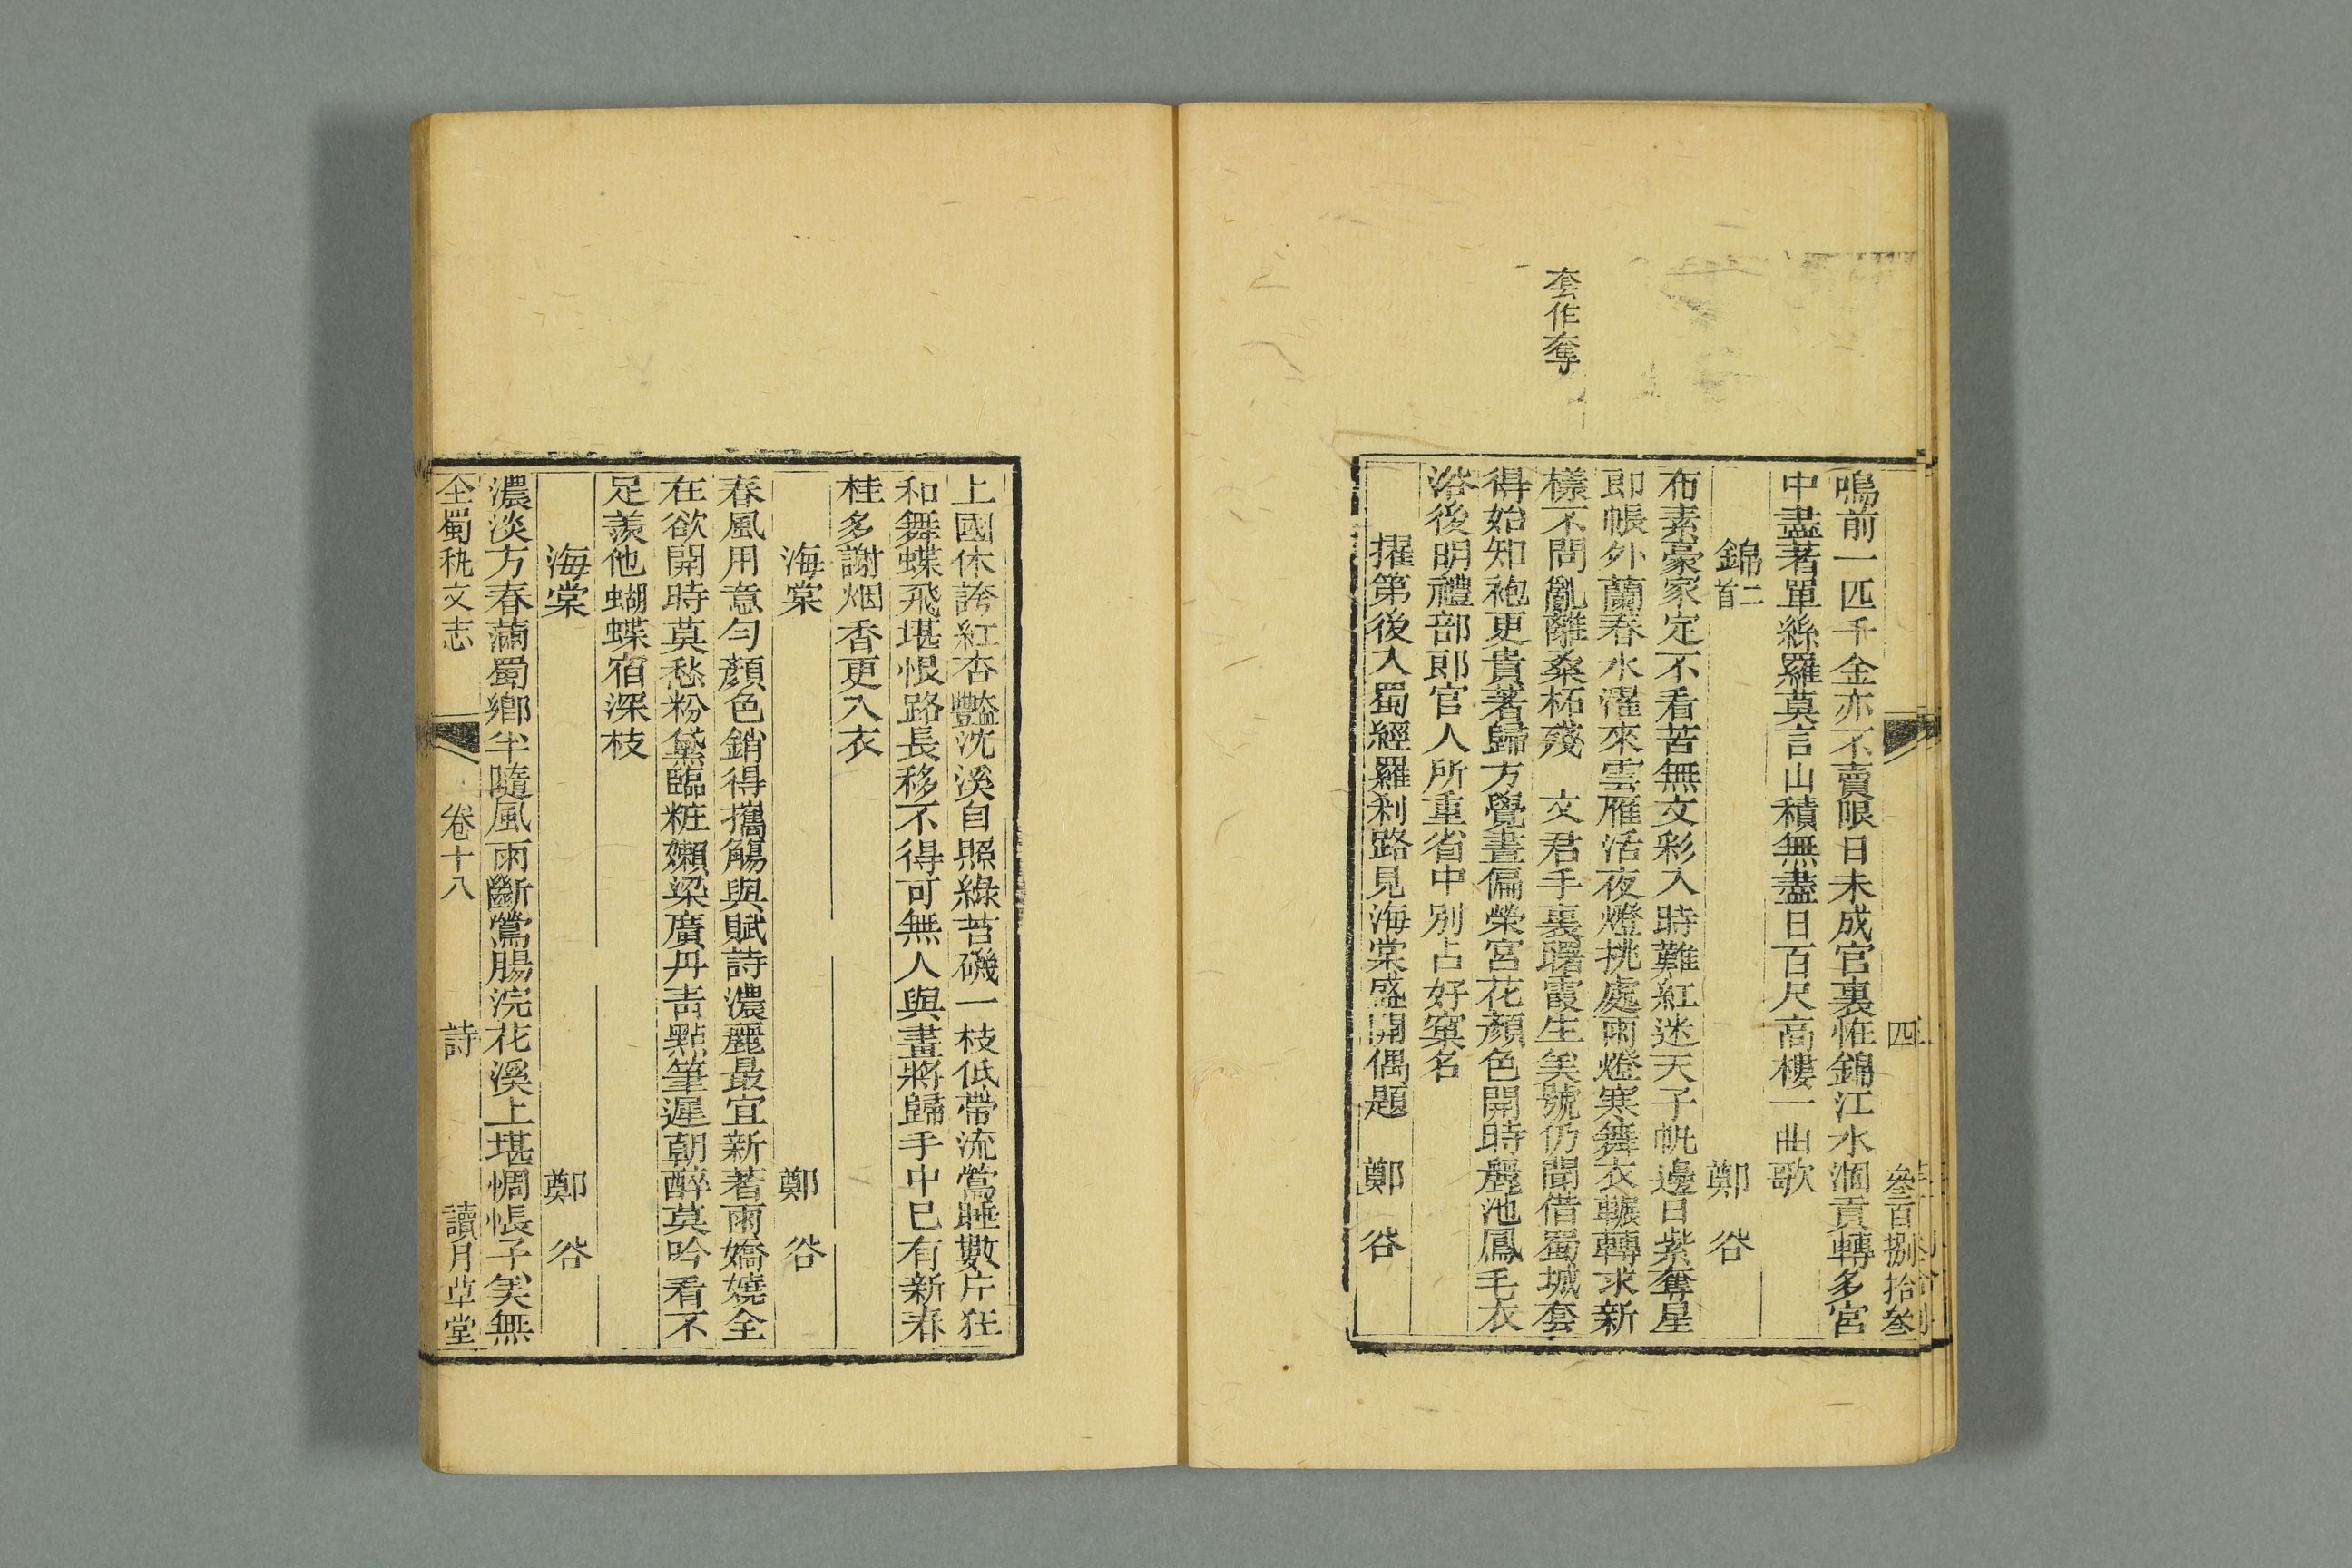 套作奪
四
叁百捌拾叁
鳴前一匹千金亦不賣限日未成官裏怪錦江水涸貢轉多宮
中盡著單絲羅莫言山積無盡日百尺高樓一曲歌
錦二首 鄭谷
布素豪家定不看苦無文彩入時難紅迷天子帆邊日紫奪星
郎帳外蘭春水濯來雲雁活夜燈挑處雨燈寒舞衣轉轉求新
樣不問亂離桑柘殘 文君手裏曙霞生美號仍聞借蜀城套
得始知袍更貴著歸方覺晝偏榮宮花顏色開時麗池鳳毛衣
浴後明禮部郎官人所重省中別占好窠名
擢第後入蜀經羅利路見海棠盛開偶題 鄭谷
上國休誇紅杏豔沈溪自照綠苔磯一枝低帶流鶯睡數片狂
和舞蝶飛堪恨路長移不得可無人與畫將歸手中已有新春
桂多謝烟香更入衣
海棠 鄭谷
春風用意勻顏色銷得攜觴與賦詩濃麗最宜新著雨嬌嬈全
在欲開時莫愁粉黛臨粧嬾梁廣丹青點筆遲朝醉莫吟看不
足羨他蝴蝶宿深枝
海棠 鄭谷
濃淡方春滿蜀鄉半隨風雨斷鶯腸浣花溪上堪惆悵子美無
全蜀秇文志 卷十八 詩 讀月草堂